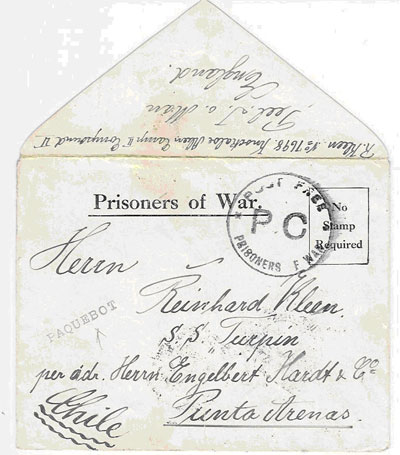 R. Kleen. No 7698. Knockaloe Alien Camp II Compound V
Peel. I. o. Man
England.
Prisoners of War.
POST FREE
P C
PRISONERS F WAR
No
Stamp
Required
Herrn
Reinhard Kleen.
PAQUEBOT
S. S. "Turpin"
per adr. Herrn Engelbert Hardt & Co
Chile
Punta Arenas.